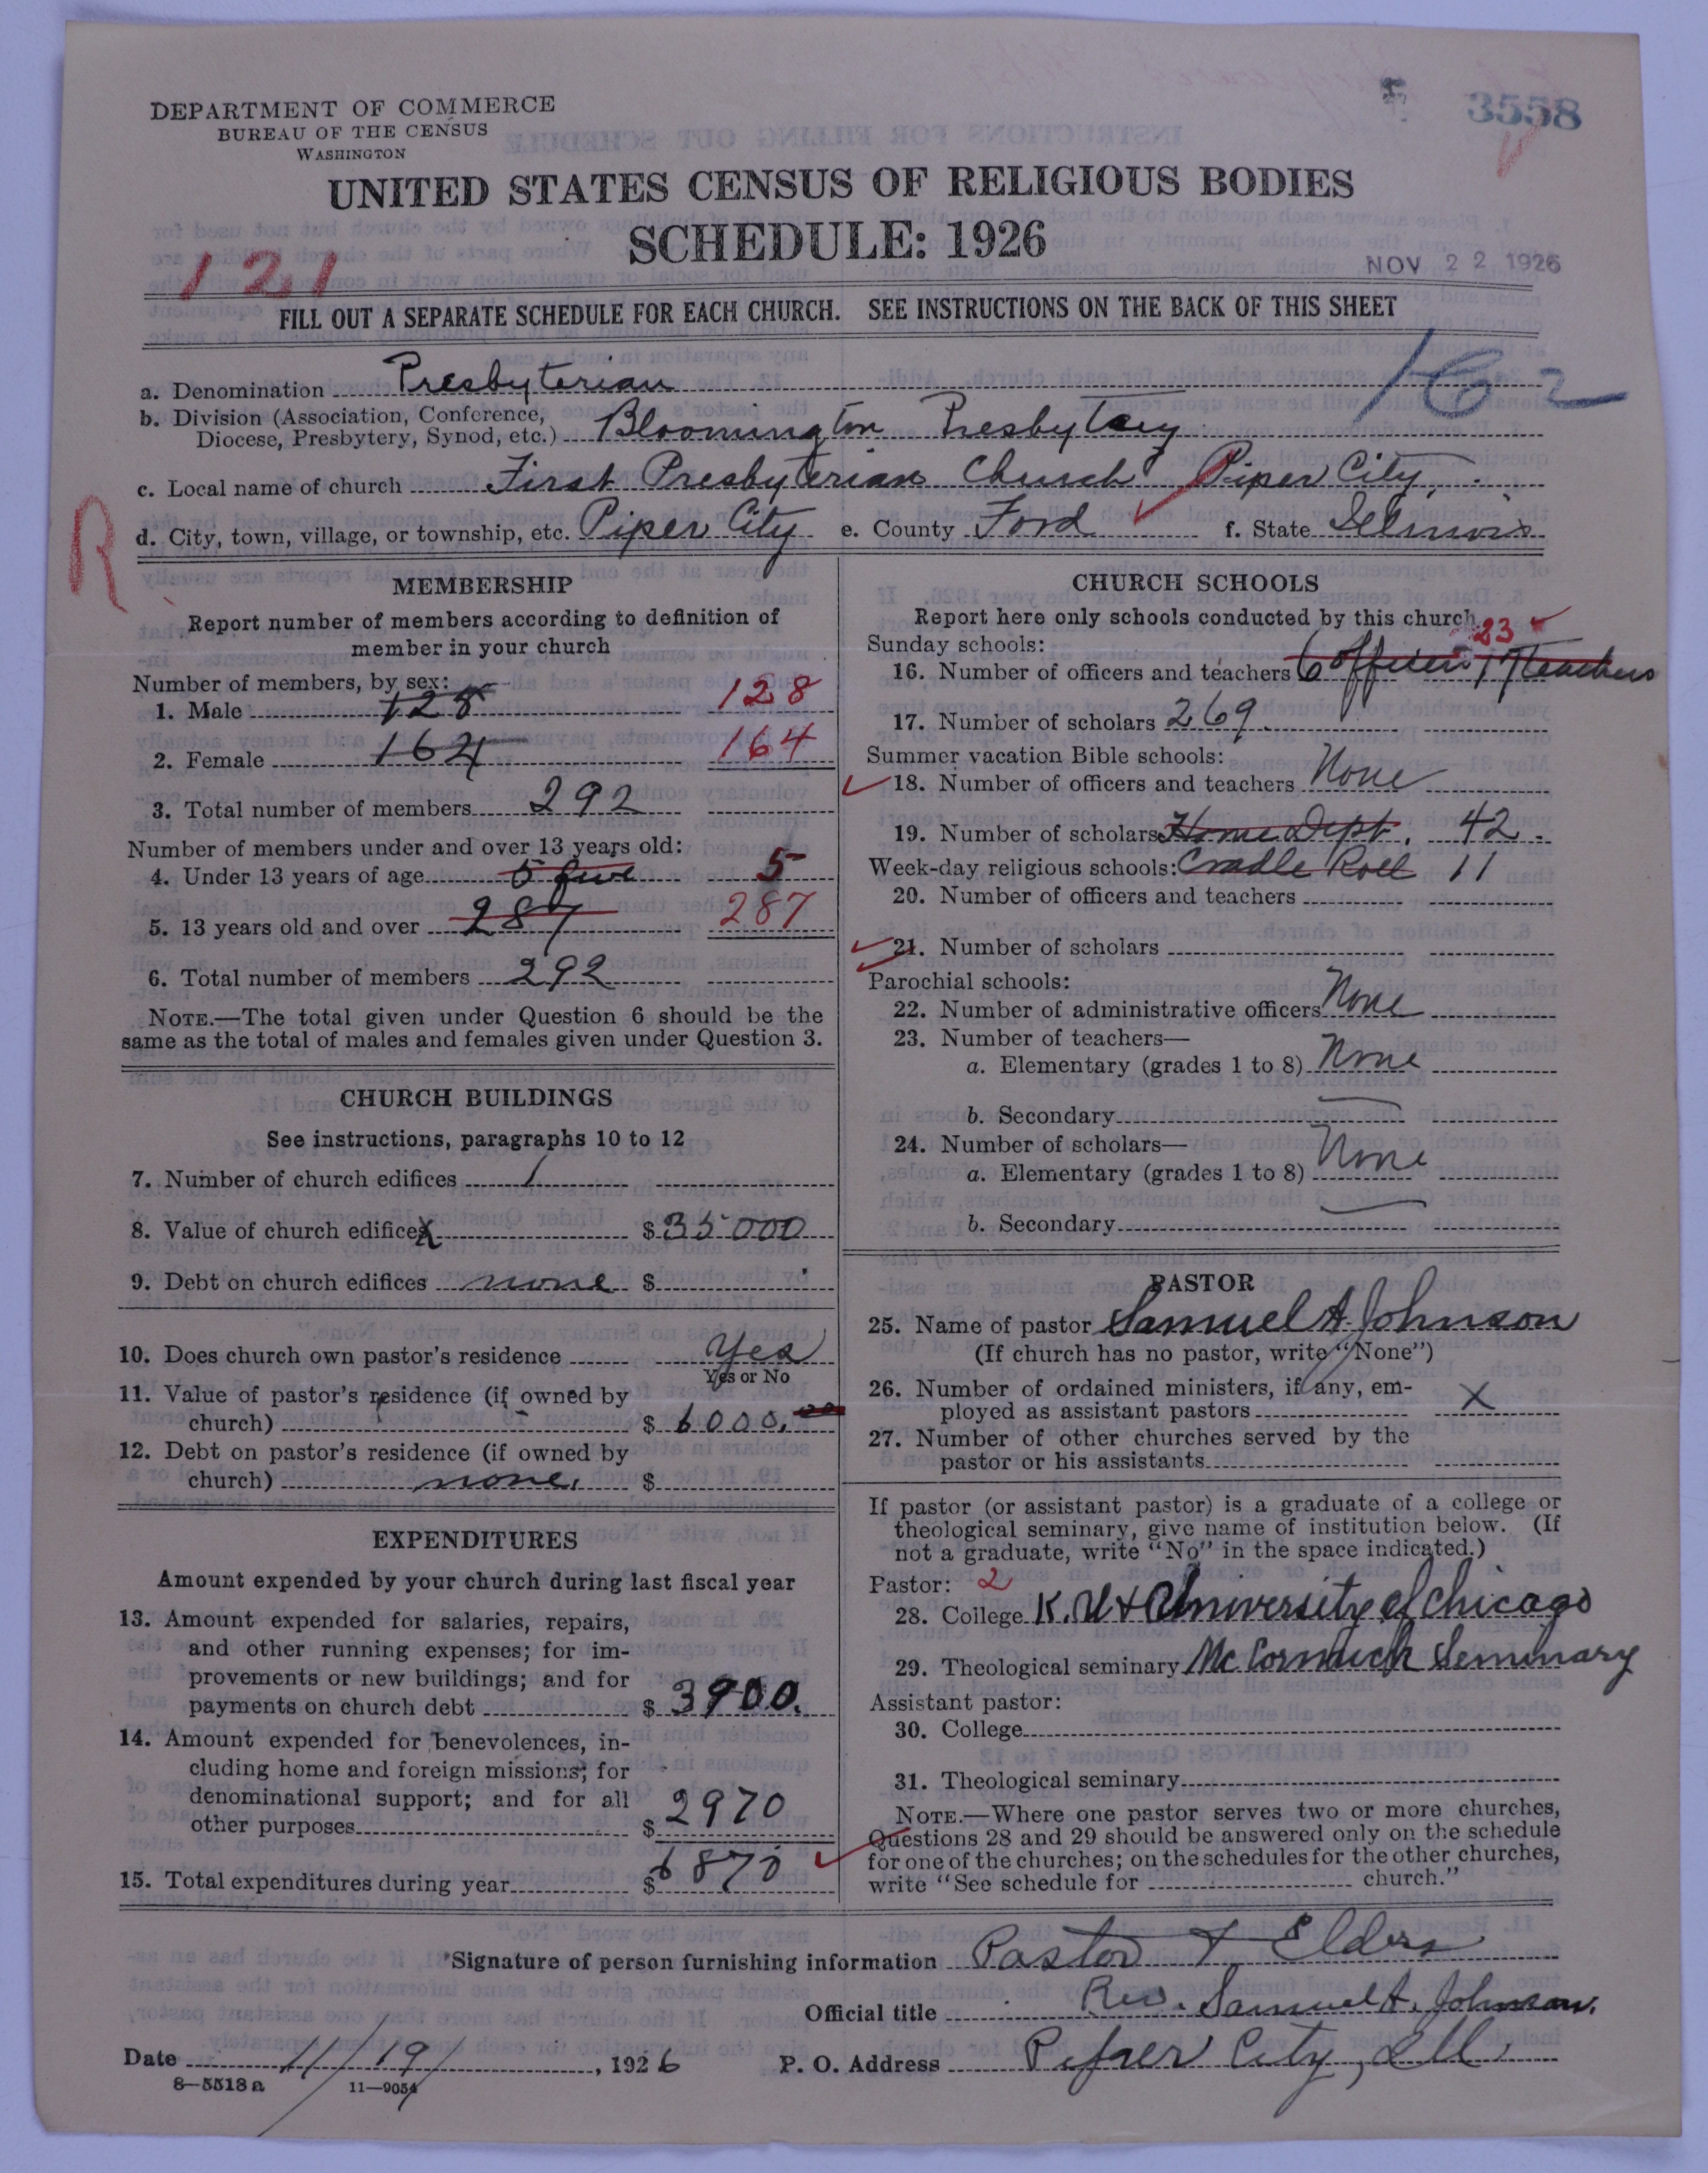 DEPARTMENT OF COMMERCE
BUREAU OF THE CENSUS
WASHINGTON
3558
UNITED STATES CENSUS OF RELIGIOUS BODIES
SCHEDULE: 1926
121
NOV 22 1926
FILL OUT A SEPARATE SCHEDULE FOR EACH CHURCH. SEE INSTRUCTIONS ON THE BACK OF THIS SHEET
a. Denomination Presbyterian
b. Division (Association, Conference,
Diocese, Presbytery, Synod, etc.) Bloomington Presbytery
c. Local name of church First Presbyterian Church Piper City,
R
d. City, town, village, or township, etc. Piper City e. County Ford f. State Illinois
MEMBERSHIP
Report number of members according to definition of
member in your church
Number of members, by sex:
1. Male 128 128
2. Female 164 164
3. Total number of members 292
Number of members under and over 13 years old:
4. Under 13 years of age 5 five 5
5. 13 years old and over 287 287
6. Total number of members 292
NOTE.—The total given under Question 6 should be the
same as the total of males and females given under Question 3.
CHURCH BUILDINGS
See instructions, paragraphs 10 to 12
7. Number of church edifices 1
8. Value of church edifices $ 35000
9. Debt on church edifices none $
10. Does church own pastor's residence Yes
Yes or No
11. Value of pastor's residence (if owned by
church) $ 6000.00
12. Debt on pastor's residence (if owned by
church) none. $
EXPENDITURES
Amount expended by your church during last fiscal year
13. Amount expended for salaries, repairs,
and other running expenses; for im-
provements or new buildings; and for
payments on church debt $ 3900.
14. Amount expended for benevolences, in-
cluding home and foreign missions; for
denominational support; and for all
other purposes $ 2970
15. Total expenditures during year $ 6870
CHURCH SCHOOLS
Report here only schools conducted by this church
Sunday schools: 23
16. Number of officers and teachers 6 officers 17 Teachers
17. Number of scholars 269
Summer vacation Bible schools:
18. Number of officers and teachers None
19. Number of scholars Home Dept. 42
Week-day religious schools: Cradle Roll 11
20. Number of officers and teachers
21. Number of scholars
Parochial schools:
22. Number of administrative officers None
23. Number of teachers—
a. Elementary (grades 1 to 8) None
b. Secondary
24. Number of scholars—
a. Elementary (grades 1 to 8) None
b. Secondary
PASTOR
25. Name of pastor Samuel A. Johnson
(If church has no pastor, write "None")
26. Number of ordained ministers, if any, em-
ployed as assistant pastors X
27. Number of other churches served by the
pastor or his assistants
If pastor (or assistant pastor) is a graduate of a college or
theological seminary, give name of institution below. (If
not a graduate, write "No" in the space indicated.)
Pastor: 2
28. College K. U + University of Chicago
29. Theological seminary McCormick Seminary
Assistant pastor:
30. College
31. Theological seminary
NOTE.—Where one pastor serves two or more churches,
Questions 28 and 29 should be answered only on the schedule
for one of the churches; on the schedules for the other churches,
write "See schedule for church."
Signature of person furnishing information Pastor & Elders
Official title Rev. Samuel A. Johnson.
Date 11/19/, 1926 P. O. Address Piper City, Ill
8—5518 a 11—9054